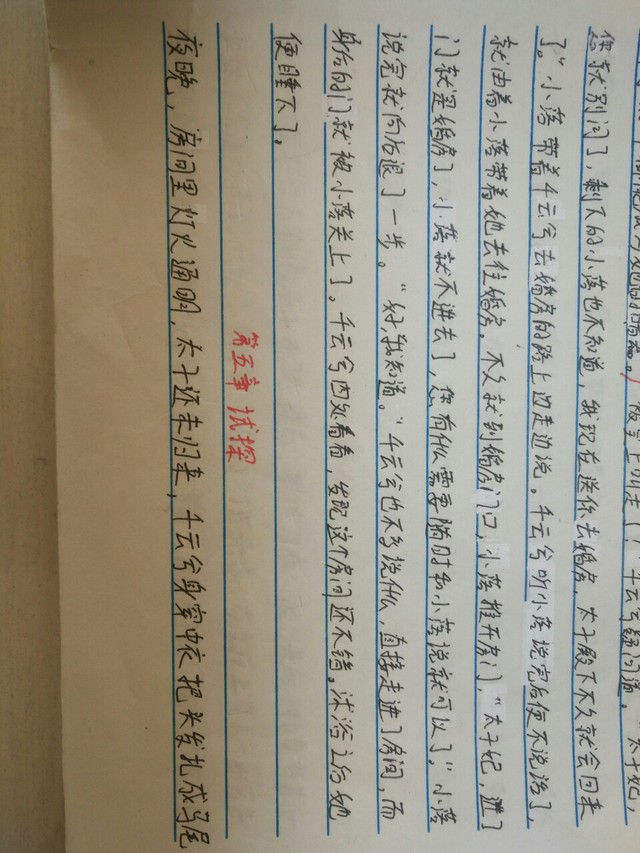 千云兮疑问道。"太子妃，
您就别问了，剩下的小落也不知道，我现在送你去婚房，太子殿下不久就会回来
了。"小落带着千云兮去婚房的路上边走边说。千云兮听小落说完后便不说话了，
就由着小落带着她去往婚房。不久就到婚房门口，小落推开房门，"太子妃，进了
门就是婚房了，小落就不进去了，您有什么需要随时和小落说就可以了，"小落
说完就向后退了一步。"好，我知道。"千云兮也不多说什么，直接走进了房间，而
身后的门就被小落关上了。千云兮四处看看，发现这个房间还不错。沐浴之后她
便睡下了。
第五章 试探
夜晚，房间里灯火通明，太子还未归来，千云兮身穿中衣把头发扎成马尾